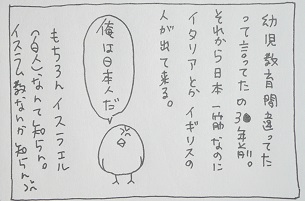 幼児教育間違ってた
って言ってたの30年前。
それから日本一筋なのに
イタリアとかイギリスの
人が出て来る。
俺は日本人だ
もちろんイスラエル
(白人)なんて知らん。
イスラム教なんか知らん